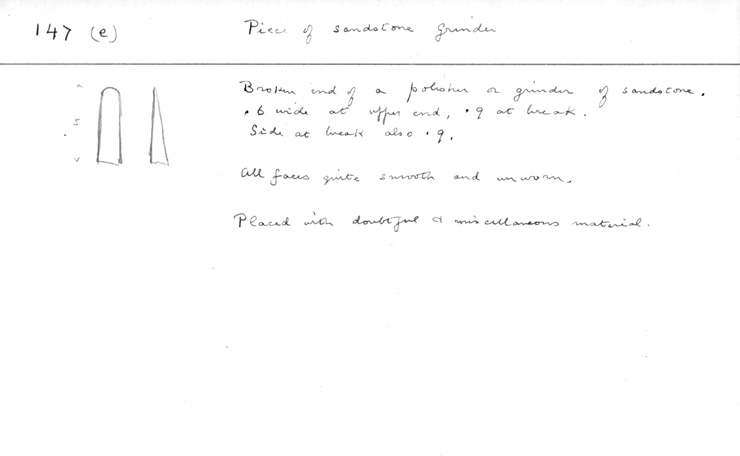 147 (e)
Piece of sandstone grinder
Broken end of a polisher or grinder of sandstone.
.6 wide at upper end, .9 at break.
Side at break also .9.
All faces quite smooth and unworn.
Placed with doubtful & miscellaneous material.